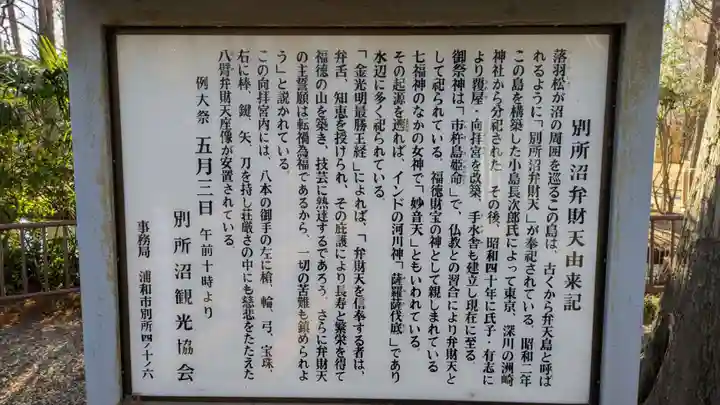 別所沼弁財天由来記
落羽松が沼の周囲を巡るこの島は、古くから弁天島と呼ば
れるように「別所沼弁財天」が奉祀されている。昭和二年
この島を構築した小島長次郎氏によって東京、深川の洲崎
神社から分祀された。その後、昭和四十年に氏子・有志に
より覆屋・向拝宮を改築、手水舎も建立し現在に至る
御祭神は「市杵島姫命」で、仏教との習合により弁財天と
して祀られている。福徳財宝の神として親しまれている
七福神のなかの女神で「妙音天」ともいわれている。
その起源を遡れば、インドの河川神「薩羅薩伐底」であり
水辺に多く祀られている。
「金光明最勝王経」によれば、「弁財天を信奉する者は、
弁舌、知恵を授けられ、その庇護により長寿と繁栄を得て
福徳の山を築き、技芸に熟達するであろう。さらに弁財天
の主誓願は転禍為福であるから、一切の苦難も鎮められよ
う」と説かれている。
この向拝宮内には、八本の御手の左に槍、輪、弓、宝珠、
右に棒、鍵、矢、刀を持し荘厳さの中にも慈悲をたたえた
八臂弁財天座像が安置されている。
例大祭 五月三日 午前十時より
別所沼観光協会
事務局 浦和市別所四ノ十ノ六